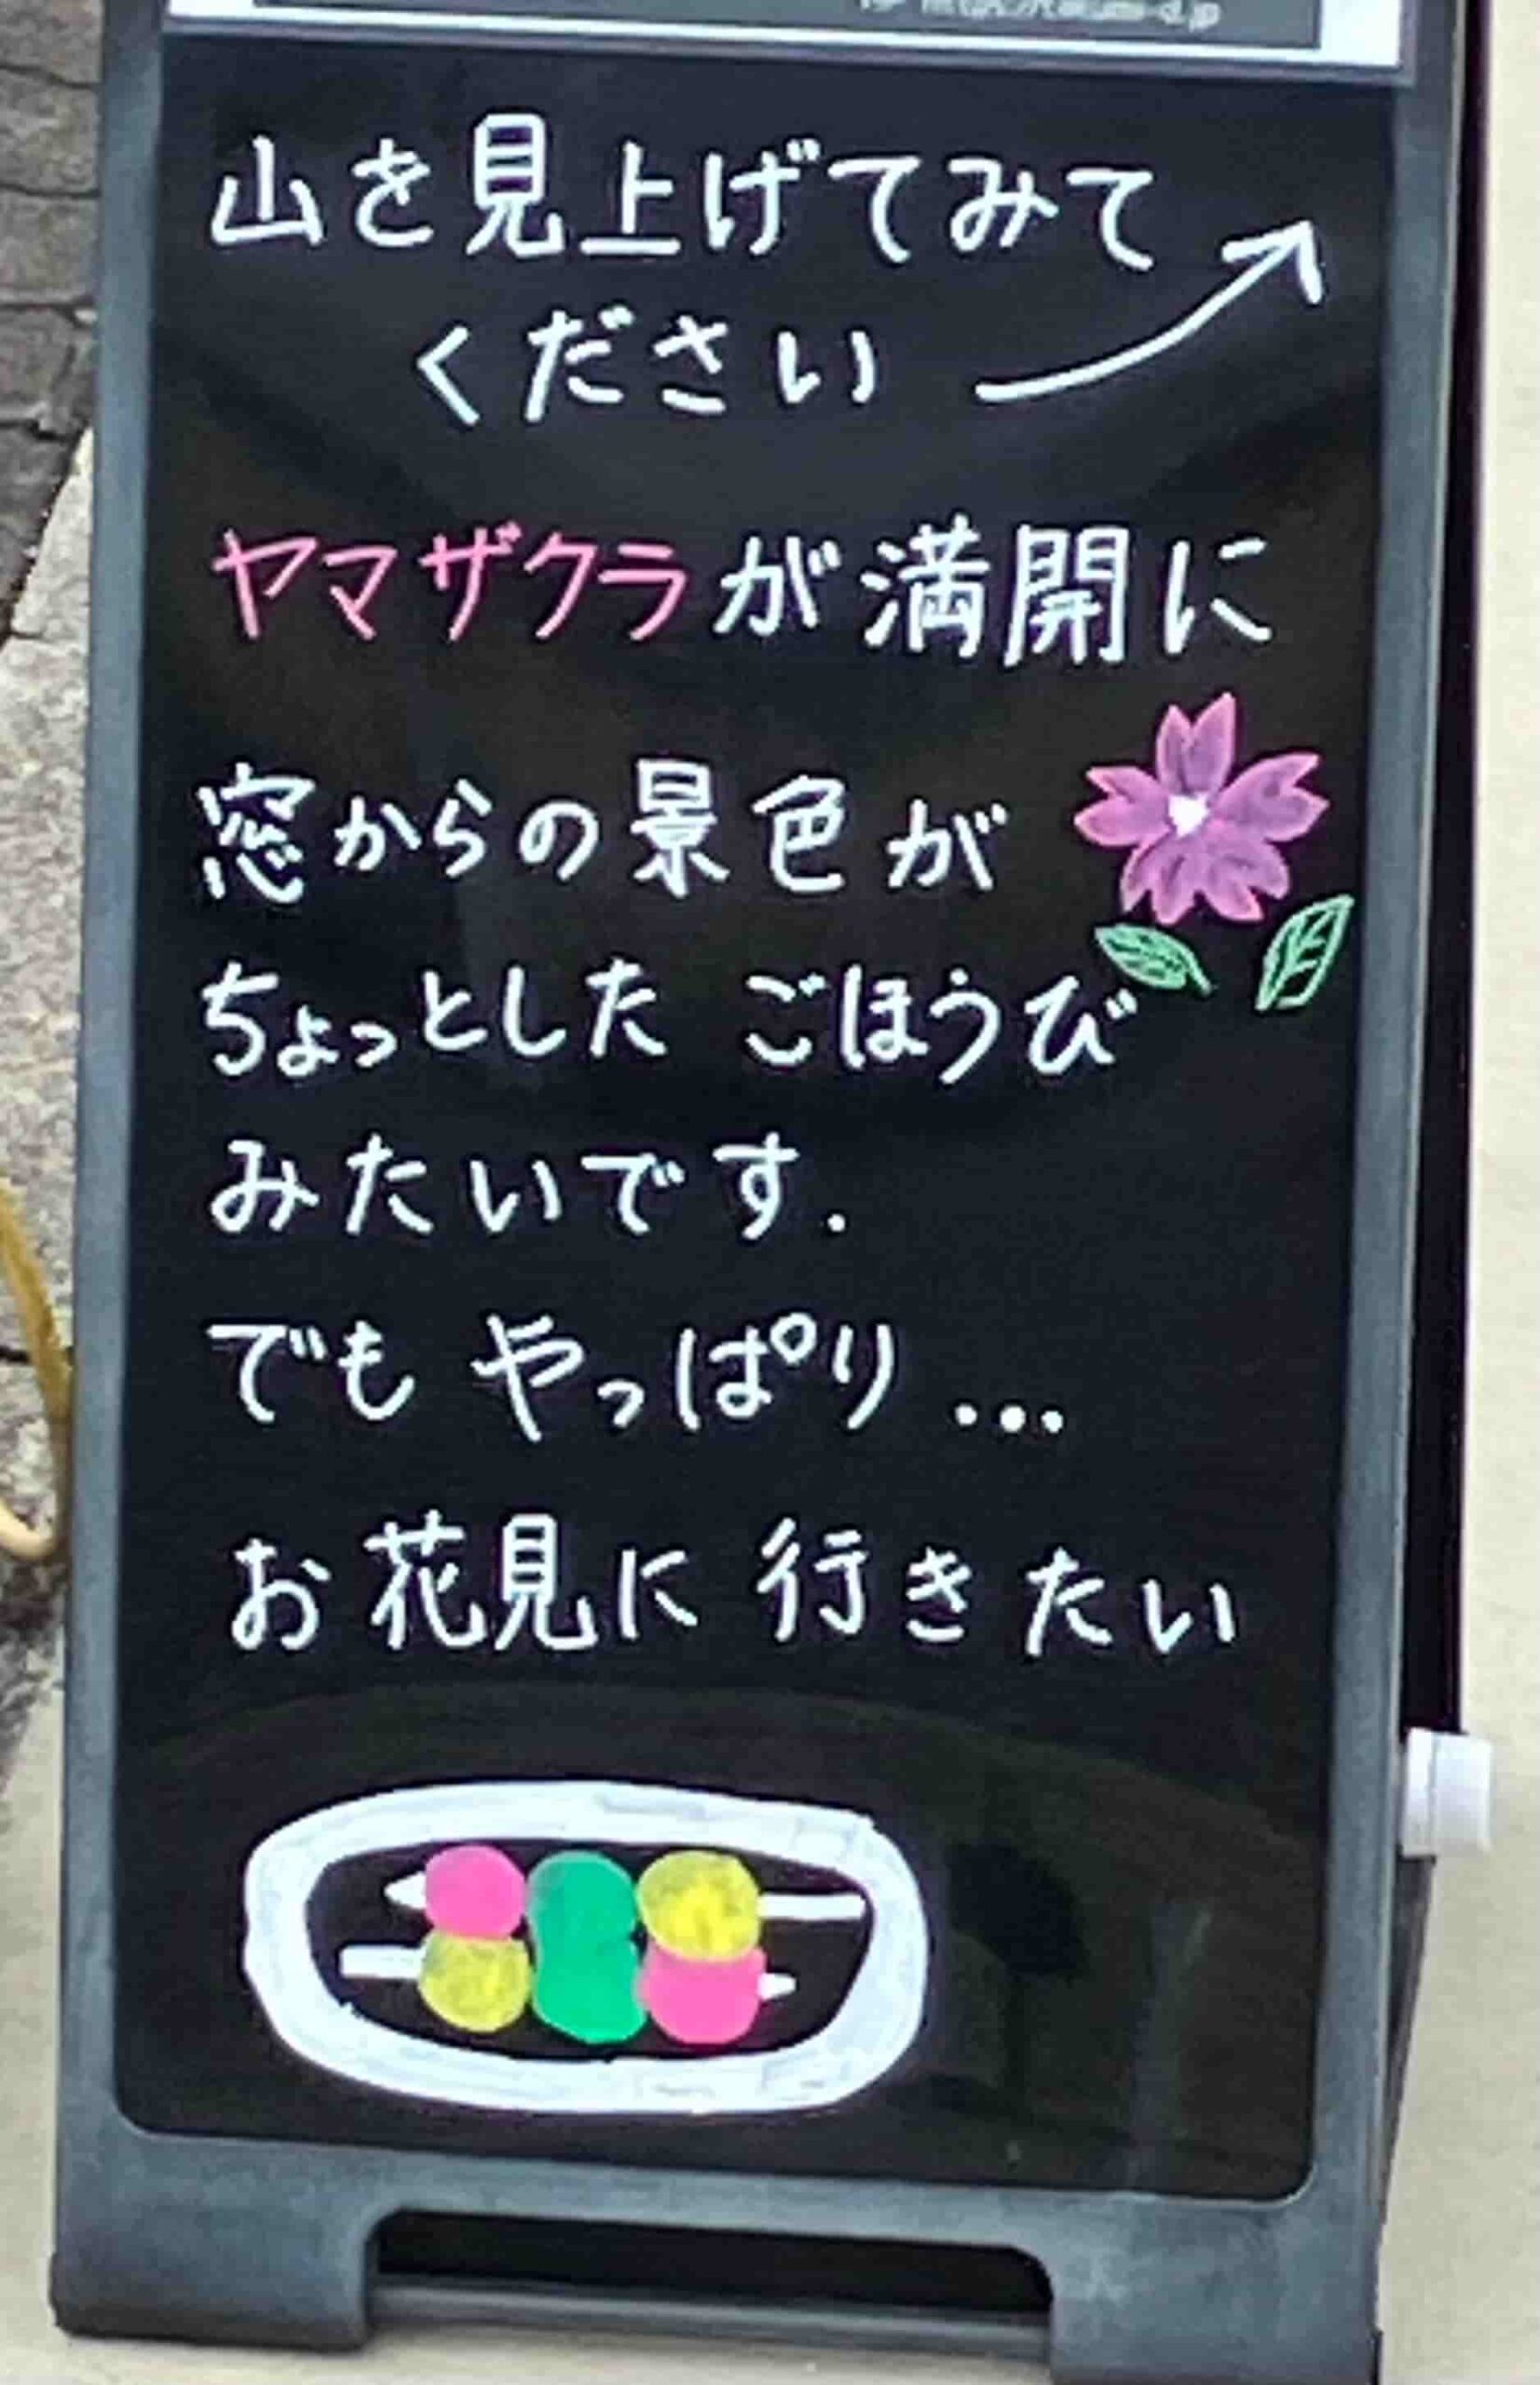 山を見上げてみて
ください
ヤマザクラが満開に
窓からの景色が
ちょっとした ごほうび
みたいです.
でも やっぱり...
お花見に 行きたい